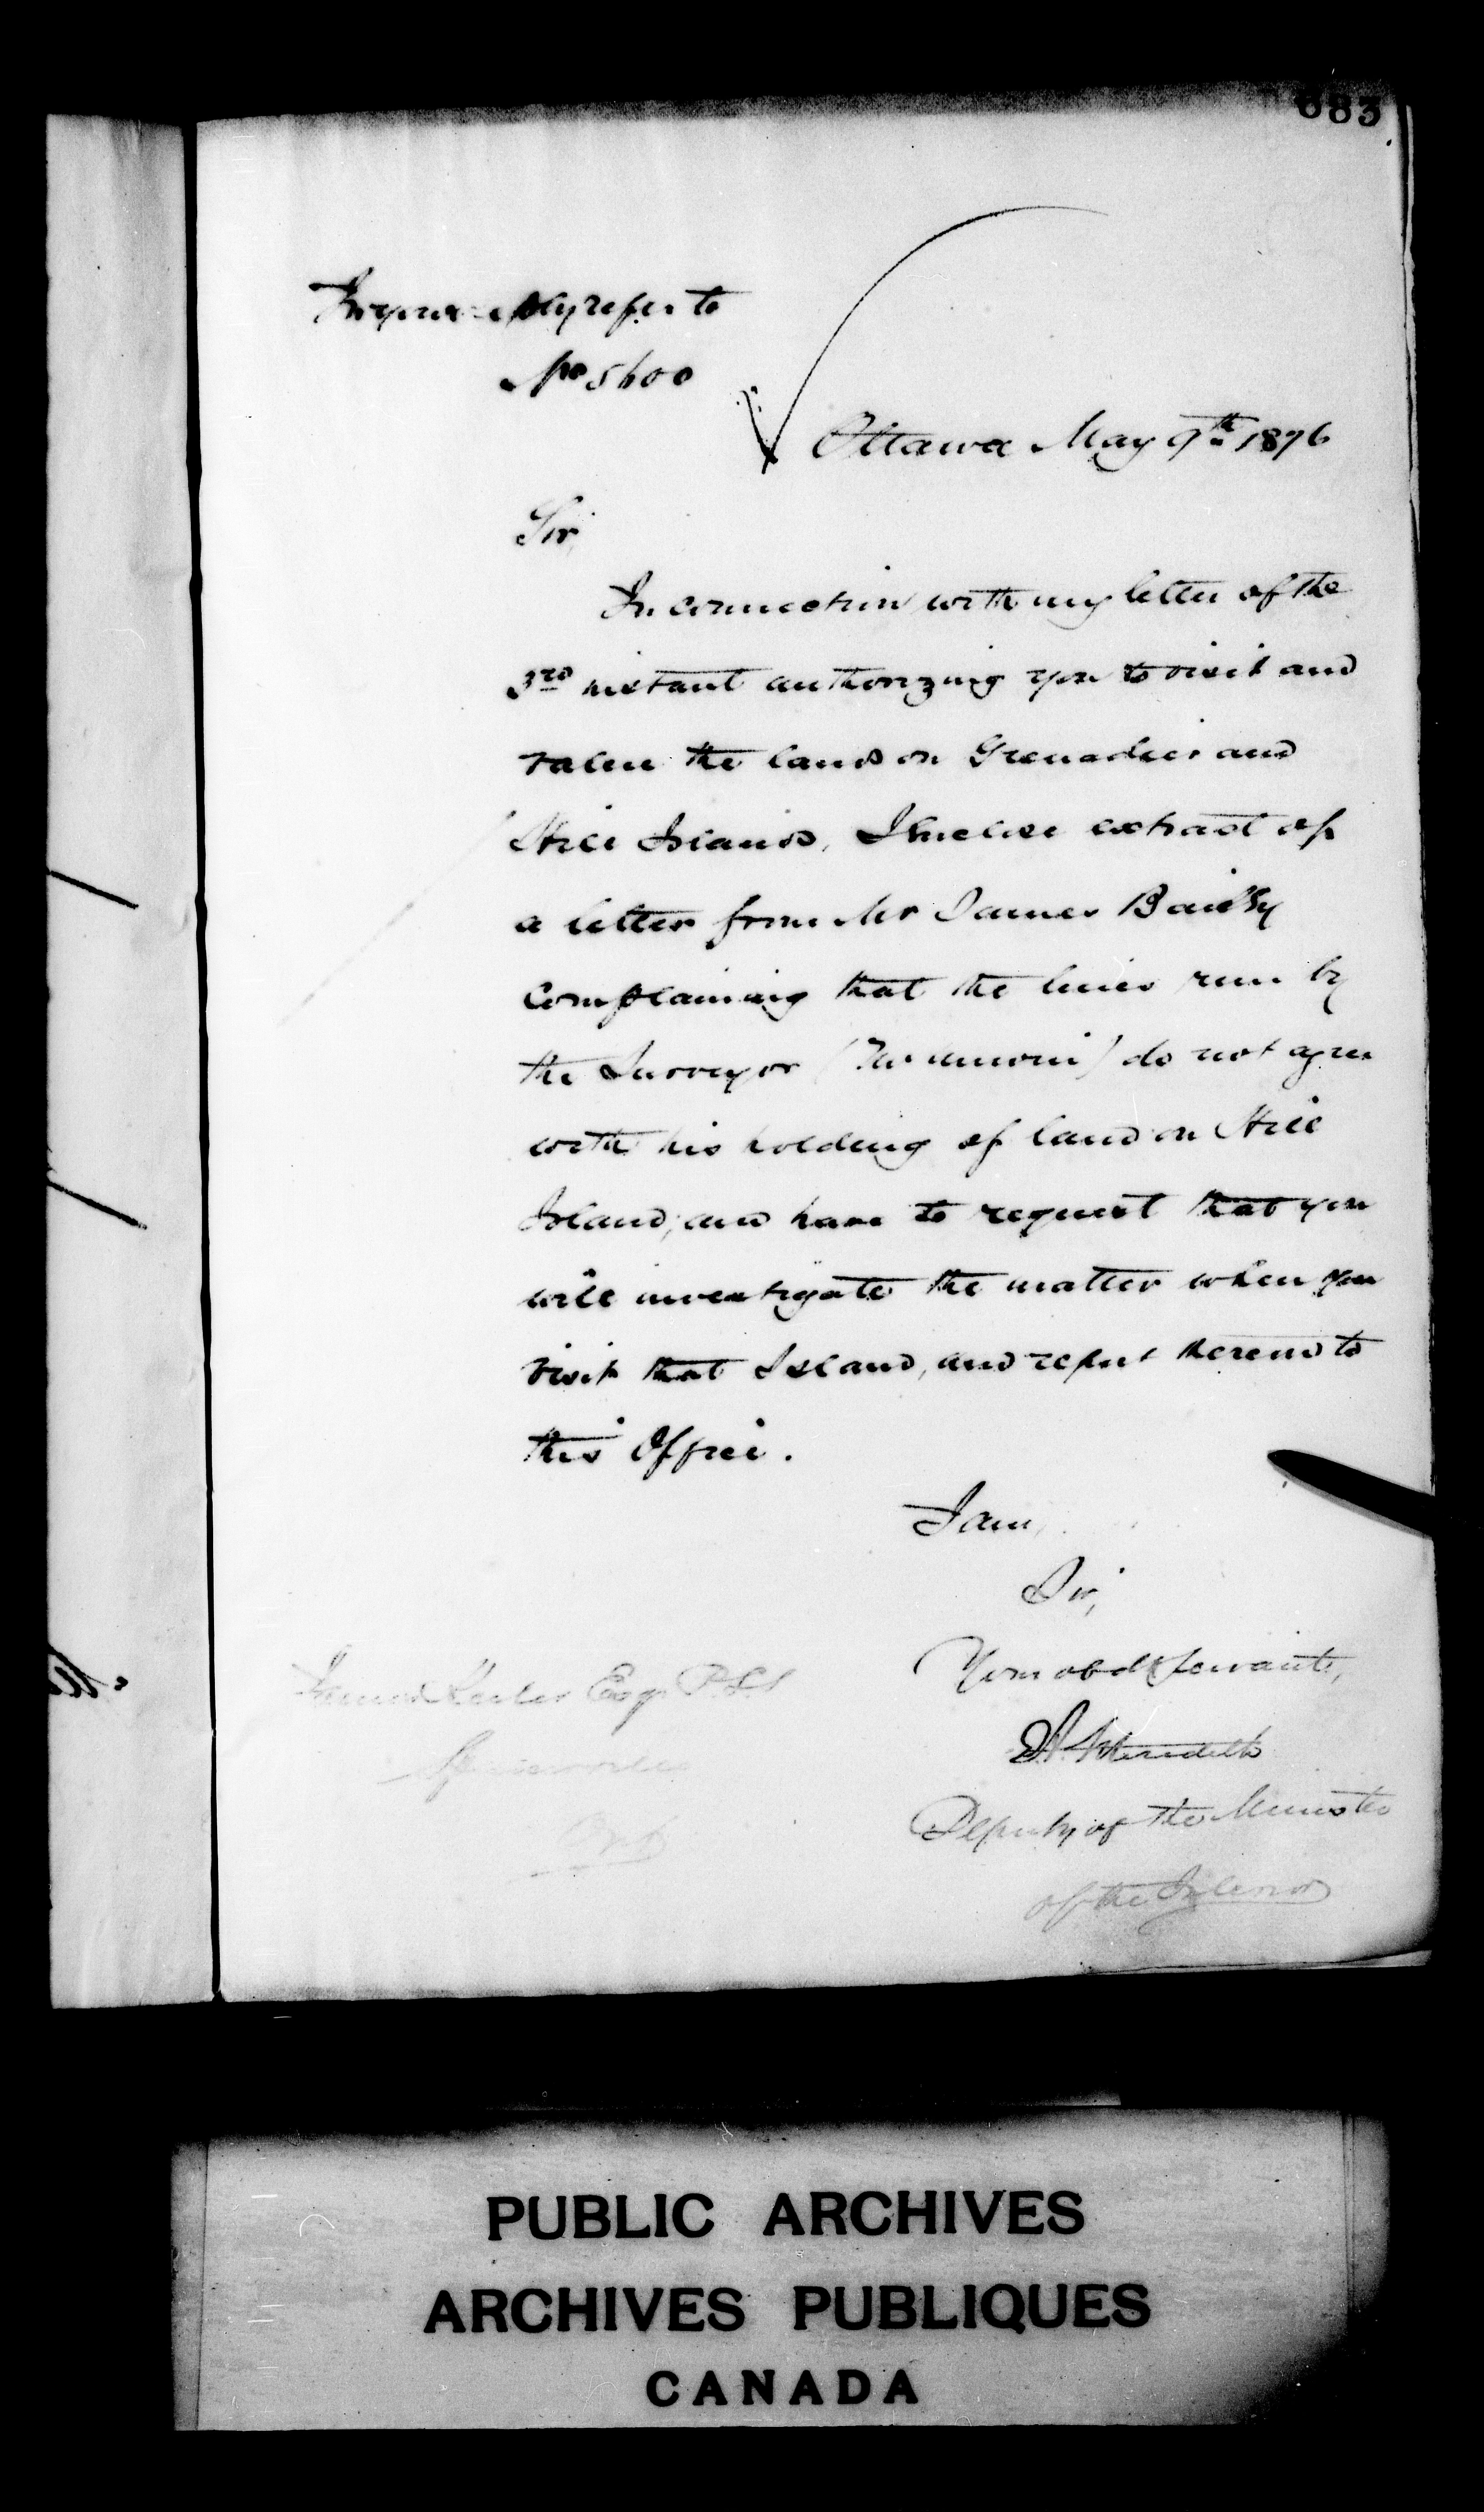 683
In your reply refer to
No 5600
Ottawa May 9th 1876
Sir,
In connection with my letter of the
3rd instant authorizing you to visit and
value the land on Grenadier and
Hill Island, I enclose extract of
a letter from Mr James Bailly
complaining that the lines run by
the Surveyor ( ) do not agree
with his holding of land on Hill
Island, and have to request that you
will investigate the matter when you
visit that Island, and report thereon to
this Office.
I am,
Sir,
Your obdt servant,
Meredith
Deputy of the Minister
of the Interior
Esqr P.L.S
PUBLIC ARCHIVES
ARCHIVES PUBLIQUES
CANADA